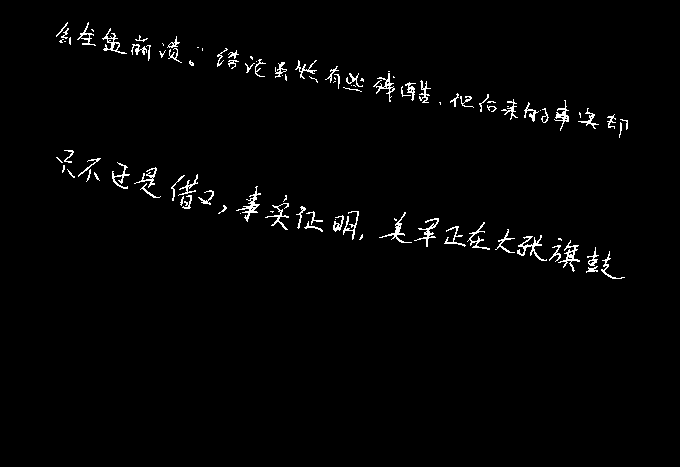 会全盘崩溃。”结论虽然有些残酷，但后来的事实却
只不过是借口，事实证明，美军正在大张旗鼓